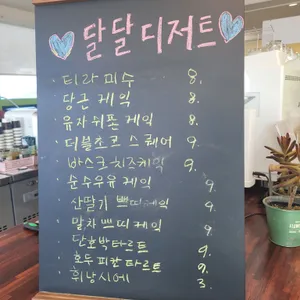 달달 디저트
· 티라미수 8.
· 당근 케익 8.
· 유자쉬폰 케익 8.
· 더블쵸코 스퀘어 9.
· 바스크 치즈케익 9.
· 순수우유 케익 9.
· 산딸기 쁘띠케익 9.
· 말차 쁘띠케익 9.
· 단호박타르트 9.
· 호두피칸타르트 9.
· 휘낭시에 3.